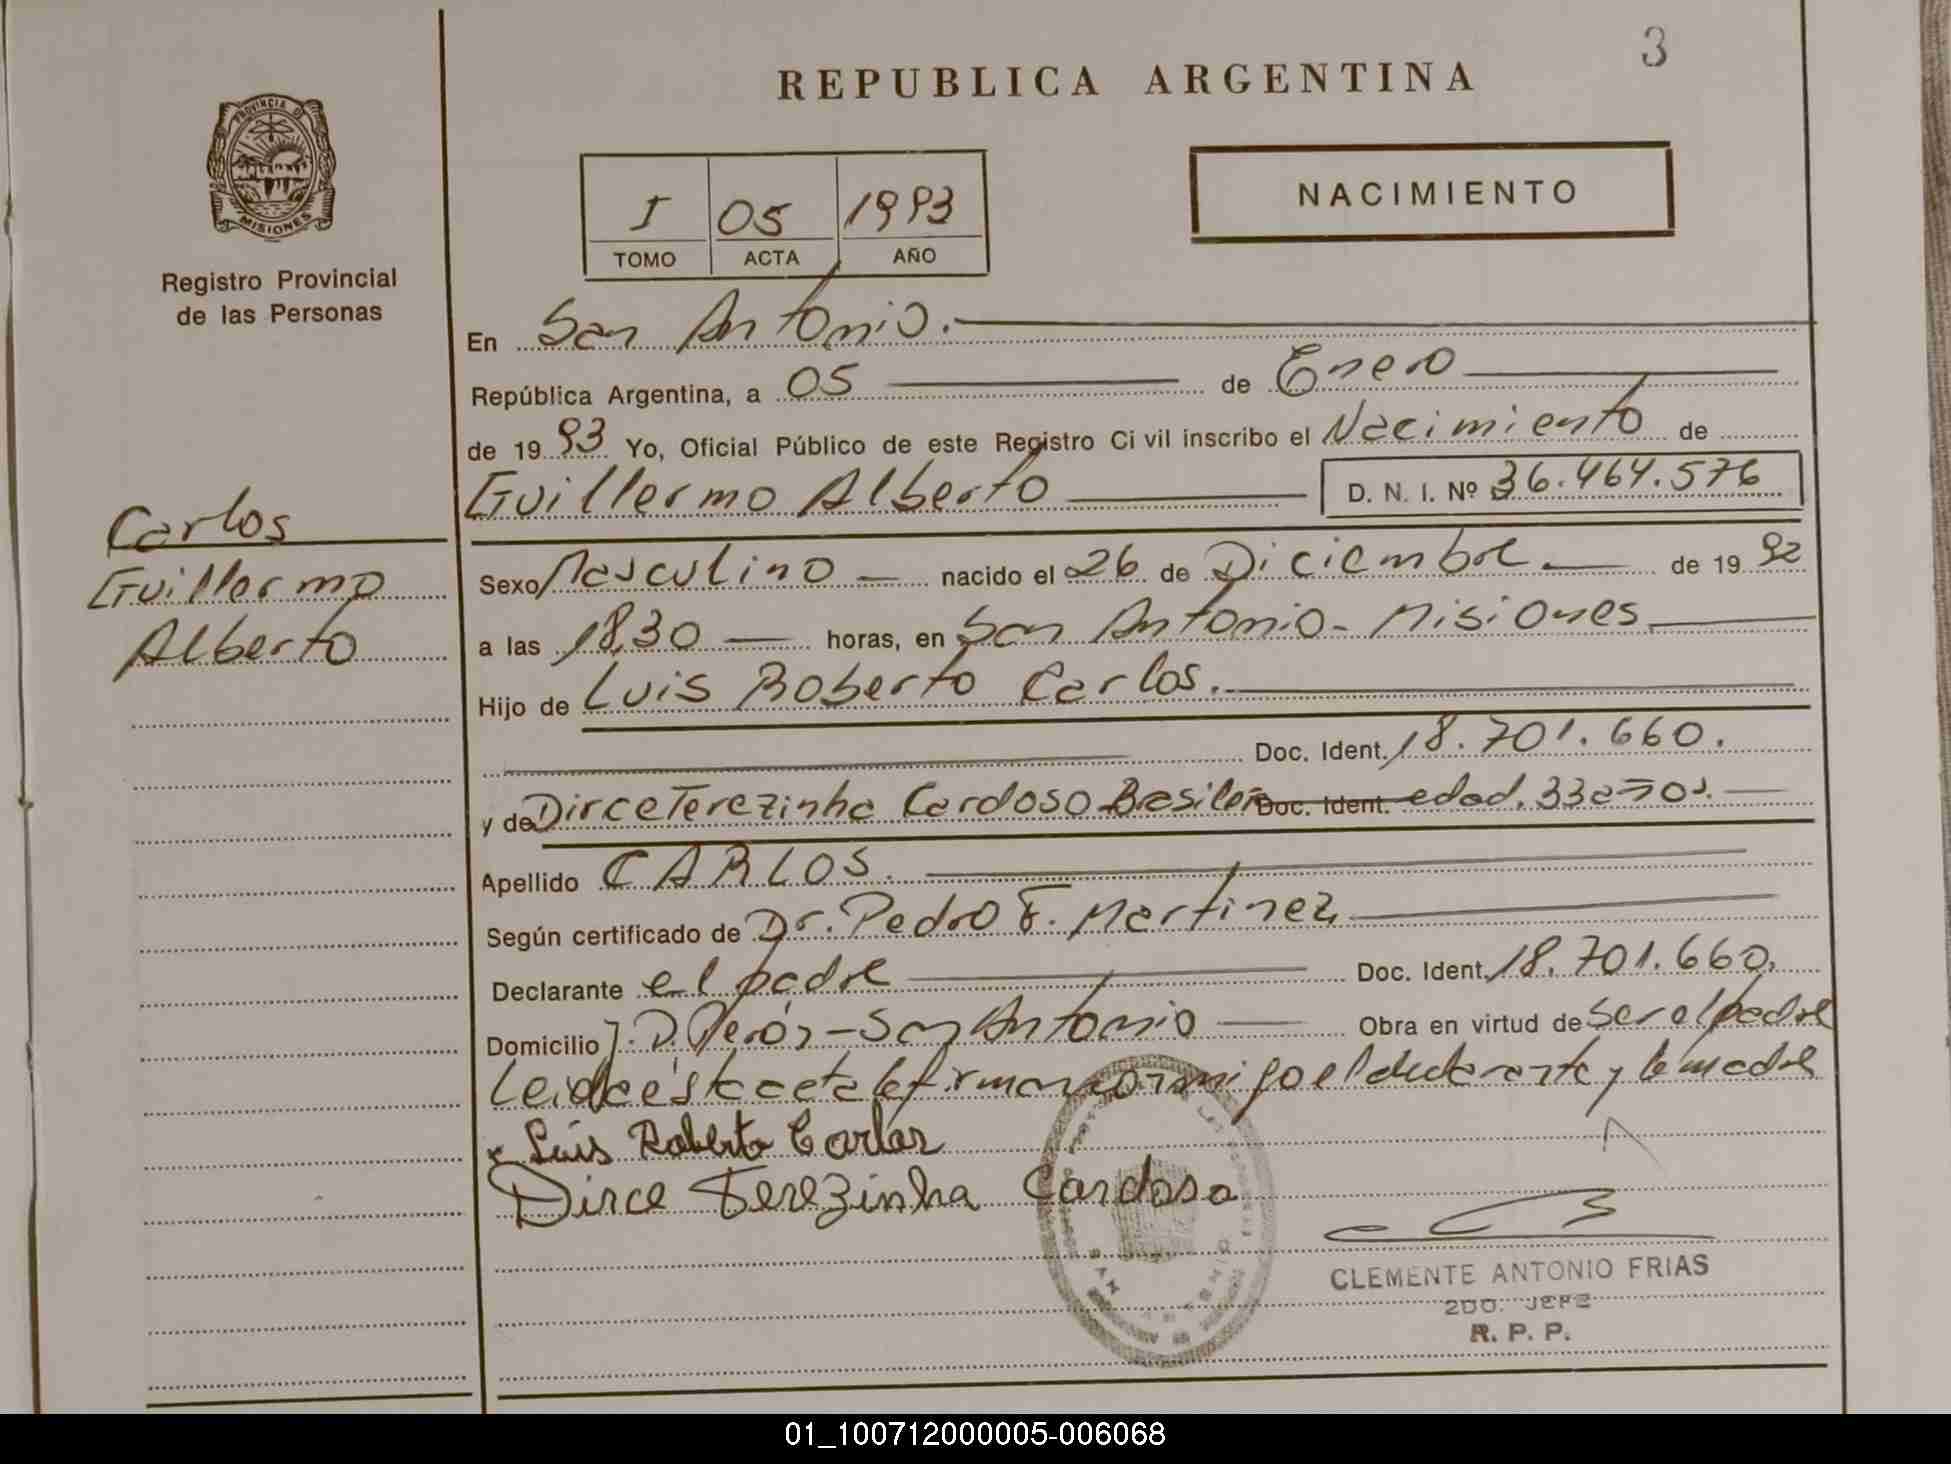 3
REPUBLICA ARGENTINA
PROVINCIA DE
MISIONES
Registro Provincial
de las Personas
I 05 1993
TOMO ACTA AÑO
NACIMIENTO
En San Antonio.
República Argentina, a 05 de Enero
de 1993 Yo, Oficial Público de este Registro Civil inscribo el Nacimiento de
Guillermo Alberto D. N. I. Nº 36.464.576
Carlos
Guillermo
Alberto
Sexo Masculino nacido el 26 de Diciembre. de 1992
a las 18,30 horas, en San Antonio - Misiones
Hijo de Luis Roberto Carlos.
Doc. Ident. 18.701.660.
y de Dirce Terezinha Cardoso Doc. Ident. edad. 33 años.
Apellido CARLOS.
Según certificado de Dr. Pedro F. Martinez
Declarante el padre Doc. Ident. 18.701.660.
Domicilio J. D. Perón - San Antonio Obra en virtud de ser el padre
Leida ésta acta la firman conmigo el declarante y la madre
Luis Roberto Carlos
Dirce Terezinha Cardoso
CLEMENTE ANTONIO FRIAS
2DO. JEFE
R. P. P.
01_100712000005-006068